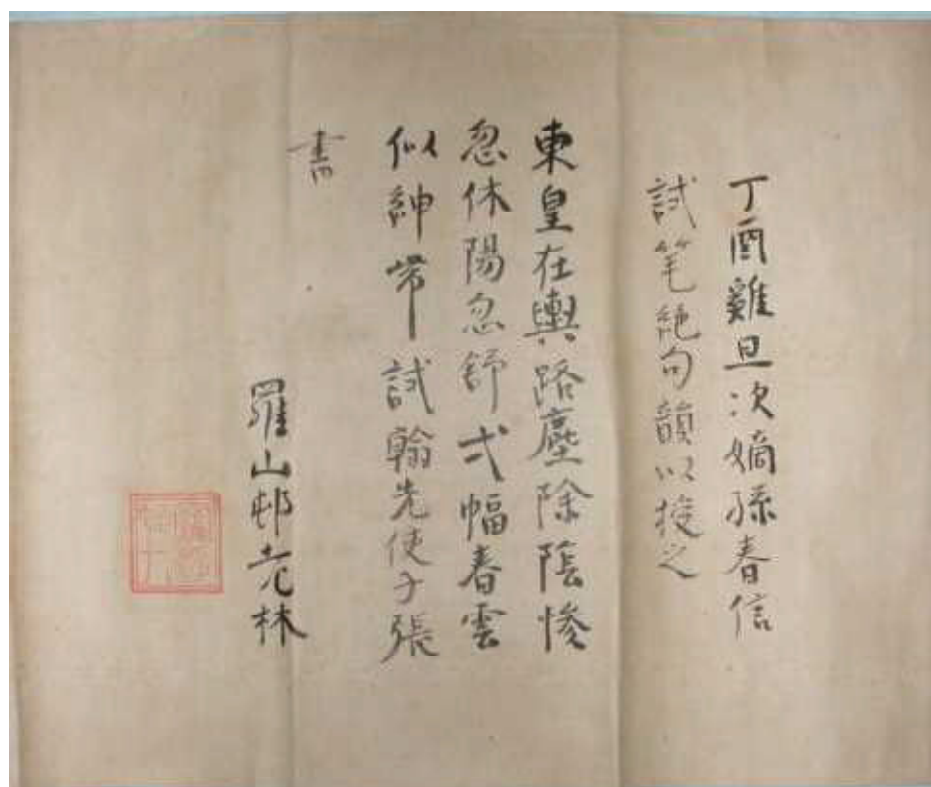 丁酉雞旦次嫡孫春信
試笔絶句韻以授之
東皇在輿路塵除陰惨
忽休陽忽舒弌幅春雲
似紳帯試翰先使子張
書
羅山邨老林